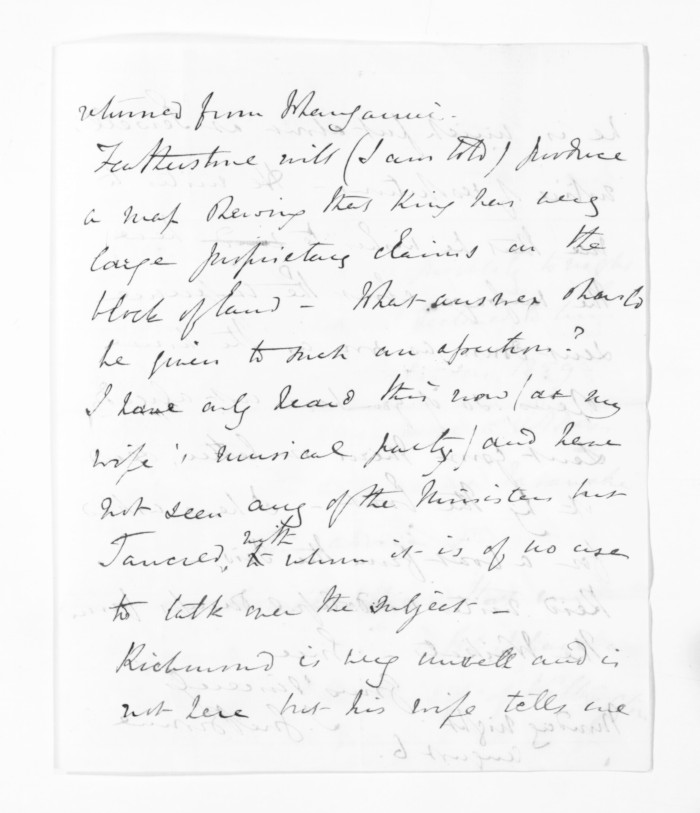 returned from Whanganui.
Featherstone will (I am told) produce
a map shewing that King has very
large proprietary claims on the
block of land – What answer should
be given to such an assertion?
I have only heard this now (at my
wife's musical party) and have
not seen any of the Ministers but
Tancred, with whom it is of no use
to talk over the subject –
Richmond is very unwell and is
not here but his wife tells me